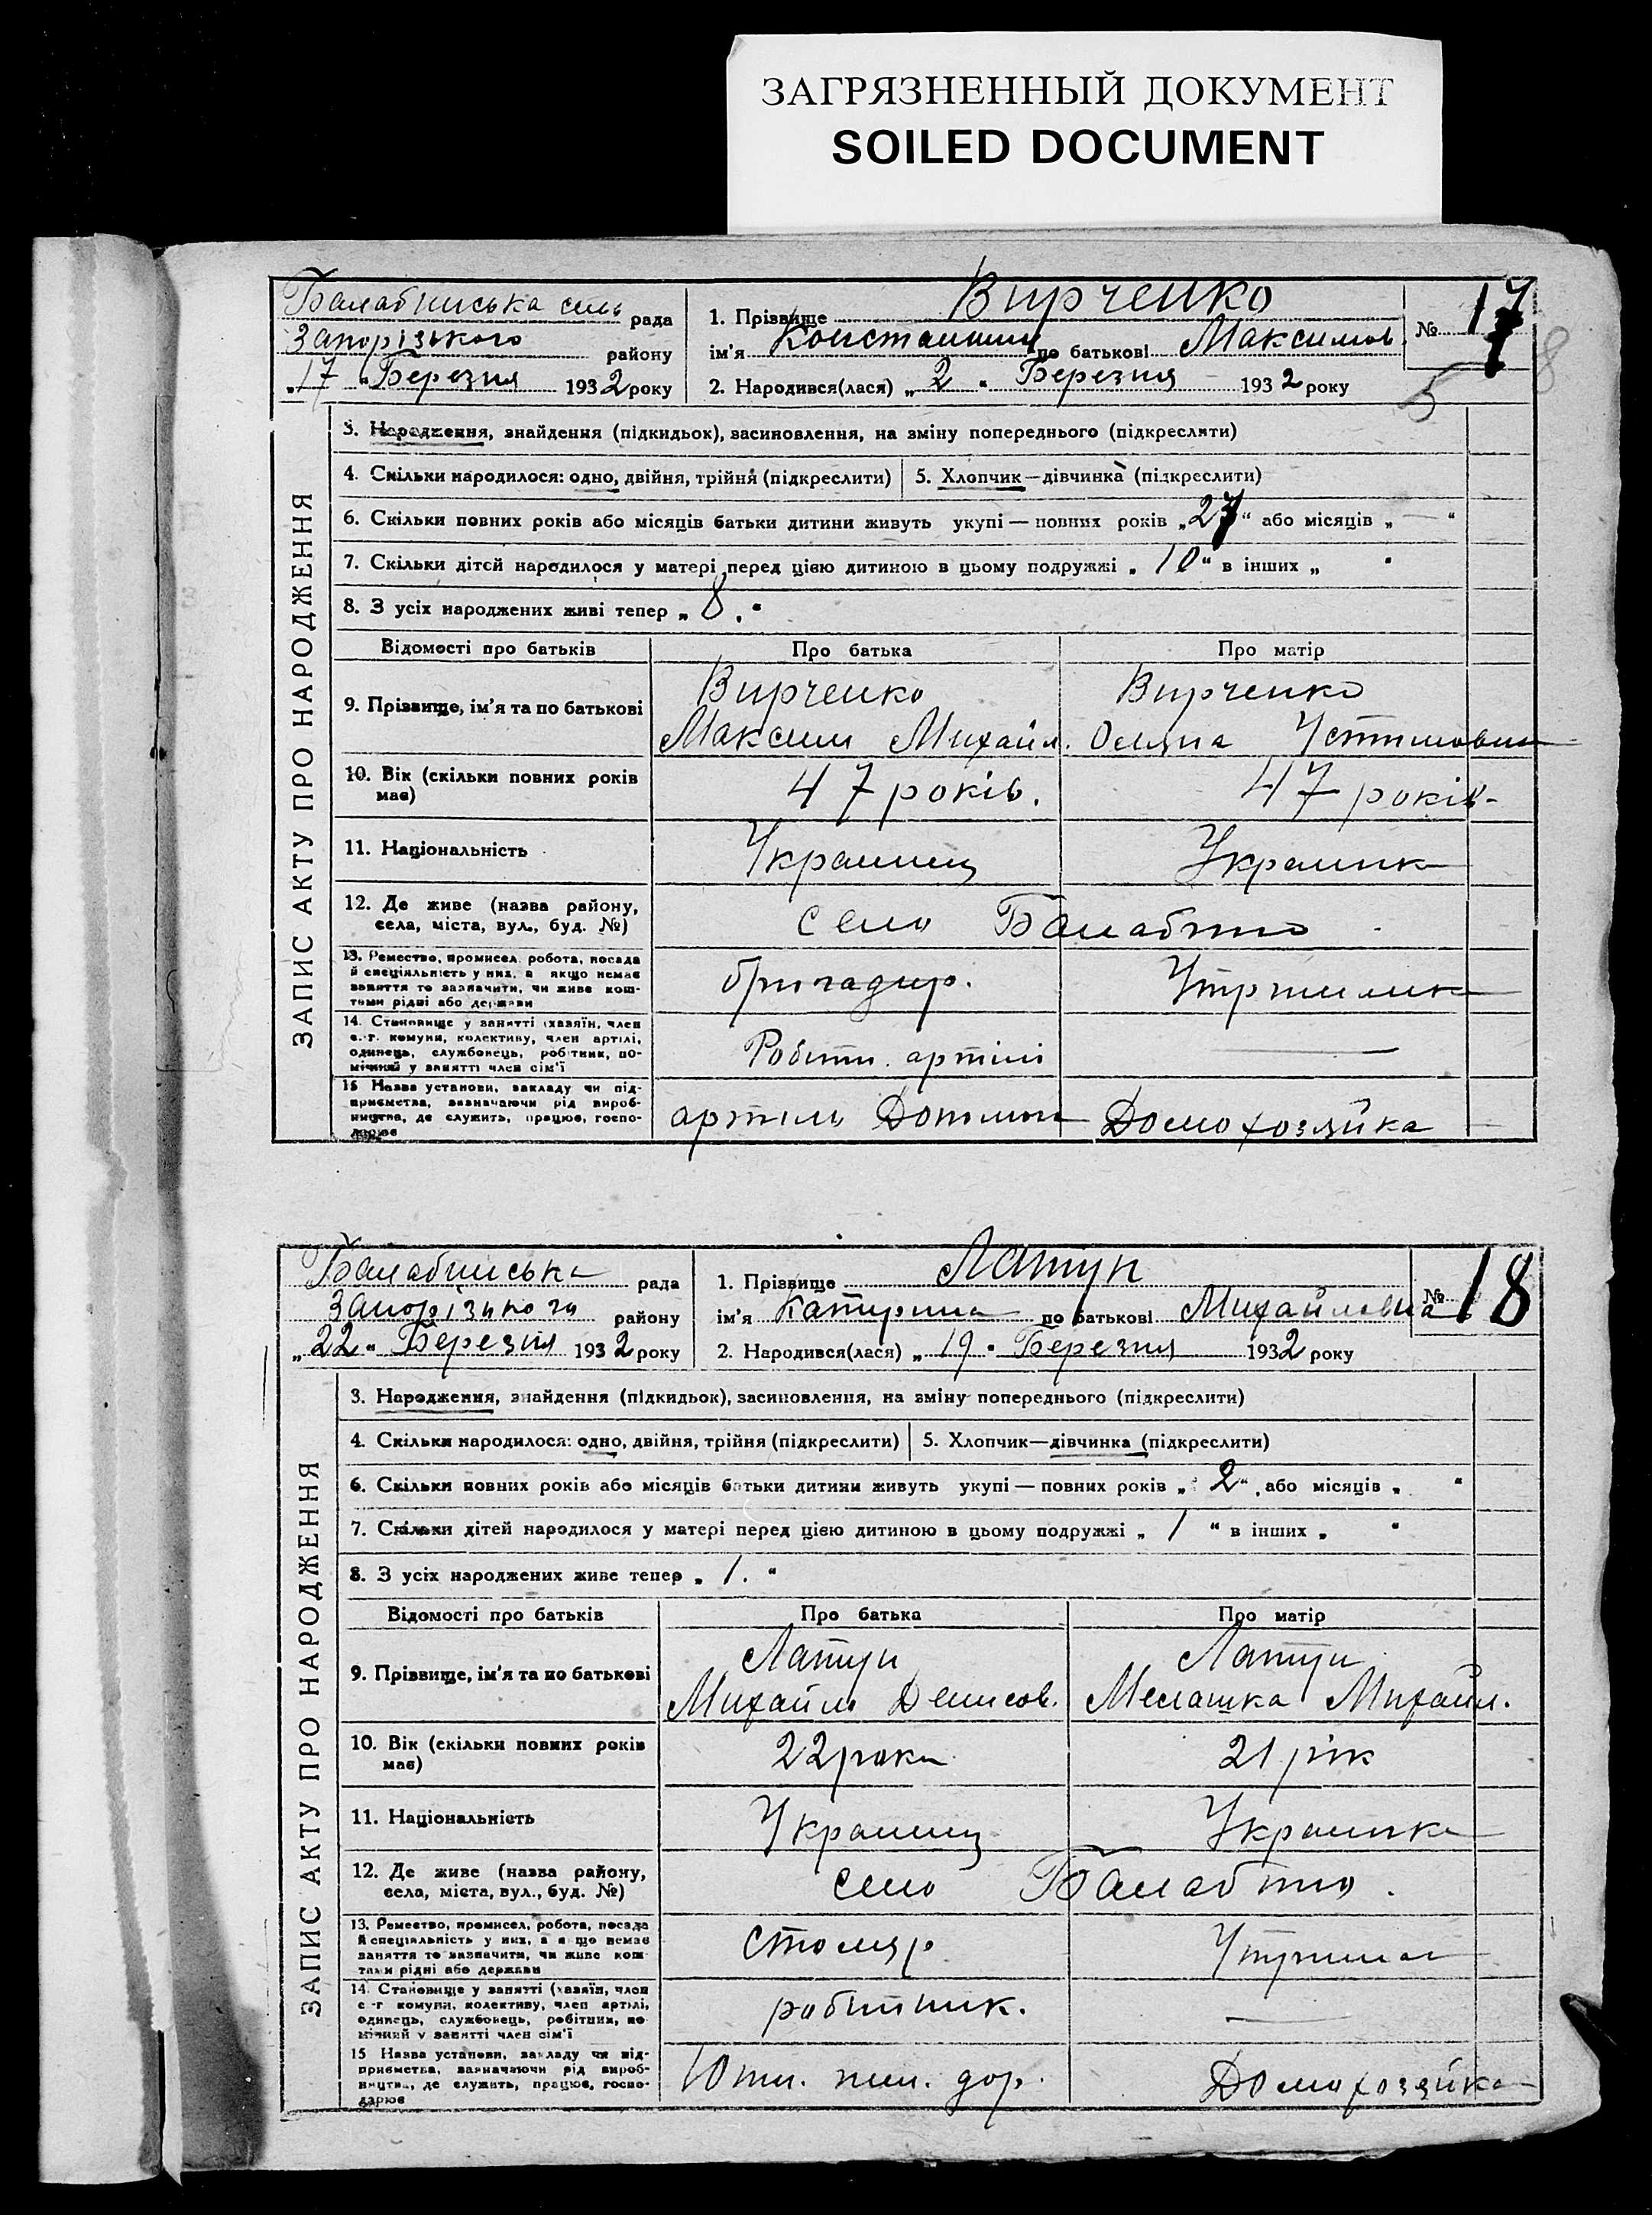 ЗАГРЯЗНЕННЫЙ ДОКУМЕНТ
SOILED DOCUMENT
Балабинська сіль рада
Запорізького району
„17“ Березня 1932 року
1. Прізвище Вирченко
ім'я Константин по батькові Максимов.
2. Народився(лася) „2“ Березня 1932 року
№ 17
8
5
ЗАПИС АКТУ ПРО НАРОДЖЕННЯ
3. Народження, знайдення (підкидьок), засиновлення, на зміну попереднього (підкреслити)
4. Скільки народилося: одно, двійня, трійня (підкреслити)
5. Хлопчик—дівчинка (підкреслити)
6. Скільки повних років або місяців батьки дитини живуть укупі — повних років „27“ або місяців „—“
7. Скільки дітей народилося у матері перед цією дитиною в цьому подружжі „10“ в інших „ “
8. З усіх народжених живі тепер „8.“
Відомості про батьків Про батька Про матір
9. Прізвище, ім'я та по батькові
Вирченко Вирченко
Максим Михайл. Устимовна
10. Вік (скільки повних років має)
47 років. 47 років
11. Національність
Украинец Украинка
12. Де живе (назва району, села, міста, вул., буд. №)
село Балабино
13. Ремество, промисел, робота, посада
й спеціяльність у них, а якщо немає
заняття то зазначити, чи живе кош-
тами рідні або держави
бригадир.
14. Становище у занятті (хазяїн, член
с.-г. комуни, колективу, член артілі,
одинець, службовець, робітник, по-
мічний у занятті член сім'ї
Робітн. артілі —
15 Назва установи, закладу чи під-
приємства, зазначаючи рід вироб-
ництва, де служить, працює, госпо-
дарює
артиль Домохозяйка
Балабинська рада
Запорізького району
„22“ Березня 1932 року
1. Прізвище Латун
ім'я Катирина по батькові Михайловна
2. Народився(лася) „19“ Березня 1932 року
№ 18
ЗАПИС АКТУ ПРО НАРОДЖЕННЯ
3. Народження, знайдення (підкидьок), засиновлення, на зміну попереднього (підкреслити)
4. Скільки народилося: одно, двійня, трійня (підкреслити)
5. Хлопчик—дівчинка (підкреслити)
6. Скільки повних років або місяців батьки дитини живуть укупі — повних років „2“, або місяців „ “
7. Скільки дітей народилося у матері перед цією дитиною в цьому подружжі „1“ в інших „ “
8. З усіх народжених живе тепер „1.“
Відомості про батьків Про батька Про матір
9. Прізвище, ім'я та по батькові
Латун Латун
Михайло Денисов. Мелашка Михайл.
10. Вік (скільки повних років має)
22 роки 21 рік
11. Національність
Украинец Украинка
12. Де живе (назва району, села, міста, вул., буд. №)
село Балабино.
13. Ремество, промисел, робота, посада
й спеціяльність у них, а якщо немає
заняття то зазначити, чи живе кош-
тами рідні або держави
столяр
14. Становище у занятті (хазяїн, член
с-г комуни, колективу, член артілі,
одинець, службовець, робітник, по-
мічний у занятті член сім'ї
робітник. —
15 Назва установи, закладу чи під-
приємства, зазначаючи рід вироб-
ництва, де служить, працює, госпо-
дарює
дор. Домохозяйка